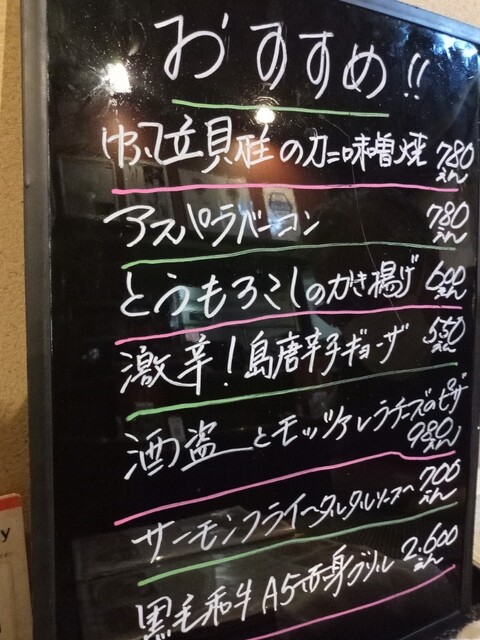 おすすめ!!
帆立貝柱のカニ味噌焼 780えん
アスパラベーコン 780えん
とうもろこしのかき揚げ 600えん
激辛!島唐辛子ギョーザ 550えん
酒盗とモッツァレラチーズのピザ
980えん
サーモンフライ〜タルタルソース〜 700えん
黒毛和牛A5赤身グリル 2.600えん